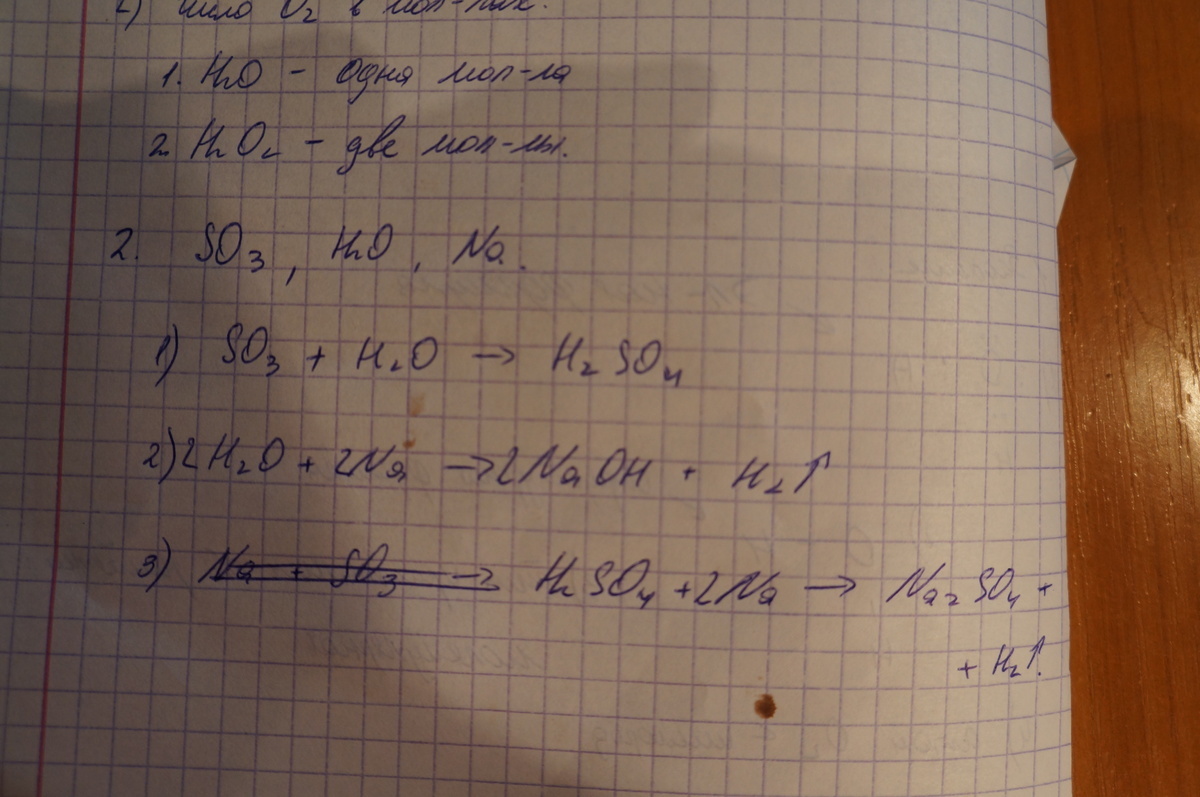 2) число O₂ в мол-лах.
1. H₂O – одна мол-ла
2. H₂O₂ – две мол-лы.
2. SO₃, H₂O, Na.
1) SO₃ + H₂O → H₂SO₄
2) 2H₂O + 2Na → 2NaOH + H₂↑
3) ~~Na + SO₃ →~~ H₂SO₄ + 2Na → Na₂SO₄ +
+ H₂↑.